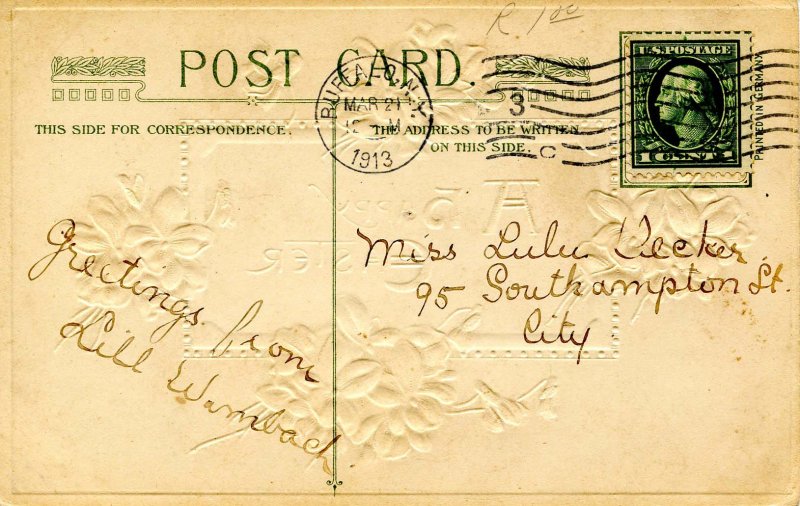 R. 1.00
POST CARD.
BUFFALO, N.Y.
MAR 21
12 M
1913
3
C
U.S. POSTAGE
1 CENT 1
PRINTED IN GERMANY
THIS SIDE FOR CORRESPONDENCE.
THE ADDRESS TO BE WRITTEN
ON THIS SIDE.
A Happy
Easter
Greetings from
Lill Wambach
Miss Lulu Decker
95 Southampton St.
City